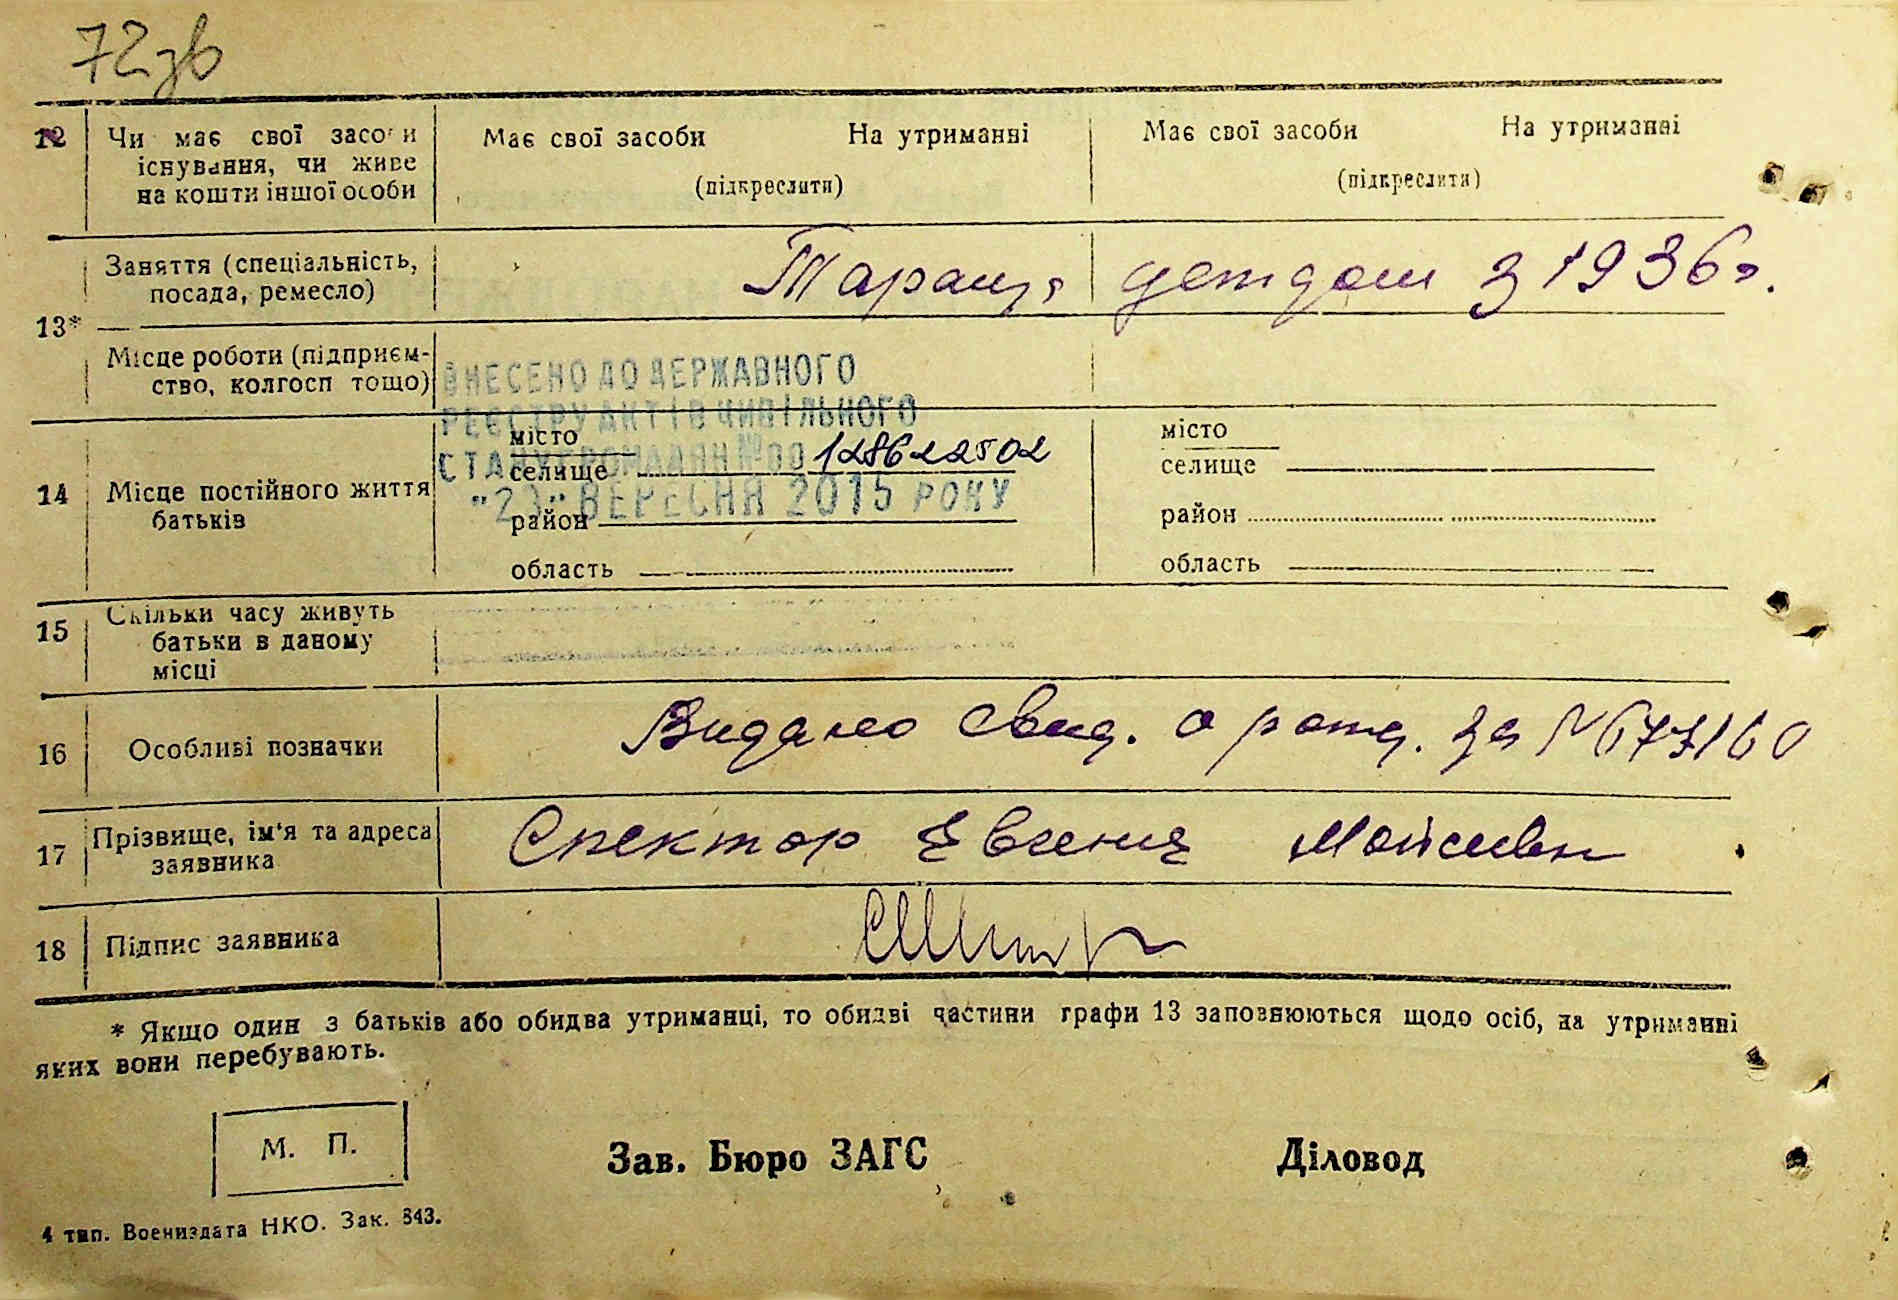 72зв
12 Чи має свої засоби існування, чи живе на кошти іншої особи
Має свої засоби На утриманні
(підкреслити)
Має свої засоби На утриманні
(підкреслити)
13*
Заняття (спеціальність,
посада, ремесло)
Тараща детдом з 1936 г.
Місце роботи (підприєм-
ство, колгосп тощо)
ВНЕСЕНО ДО ДЕРЖАВНОГО
РЕЄСТРУ АКТІВ ЦИВІЛЬНОГО
СТАНУ ГРОМАДЯН №00 128622502
"23" ВЕРЕСНЯ 2015 РОКУ
14 Місце постійного життя
батьків
місто
селище
район
область
місто
селище
район
область
15 Скільки часу живуть
батьки в даному
місці
16 Особливі позначки
Видано свид. о рожд. за №677160
17 Прізвище, ім'я та адреса
заявника
Спектор Евгения Мойсеевн
18 Підпис заявника
* Якщо один з батьків або обидва утриманці, то обидві частини графи 13 заповнюються щодо осіб, на утриманні
яких вони перебувають.
М. П.
Зав. Бюро ЗАГС
Діловод
4 тип. Воениздата НКО. Зак. 843.